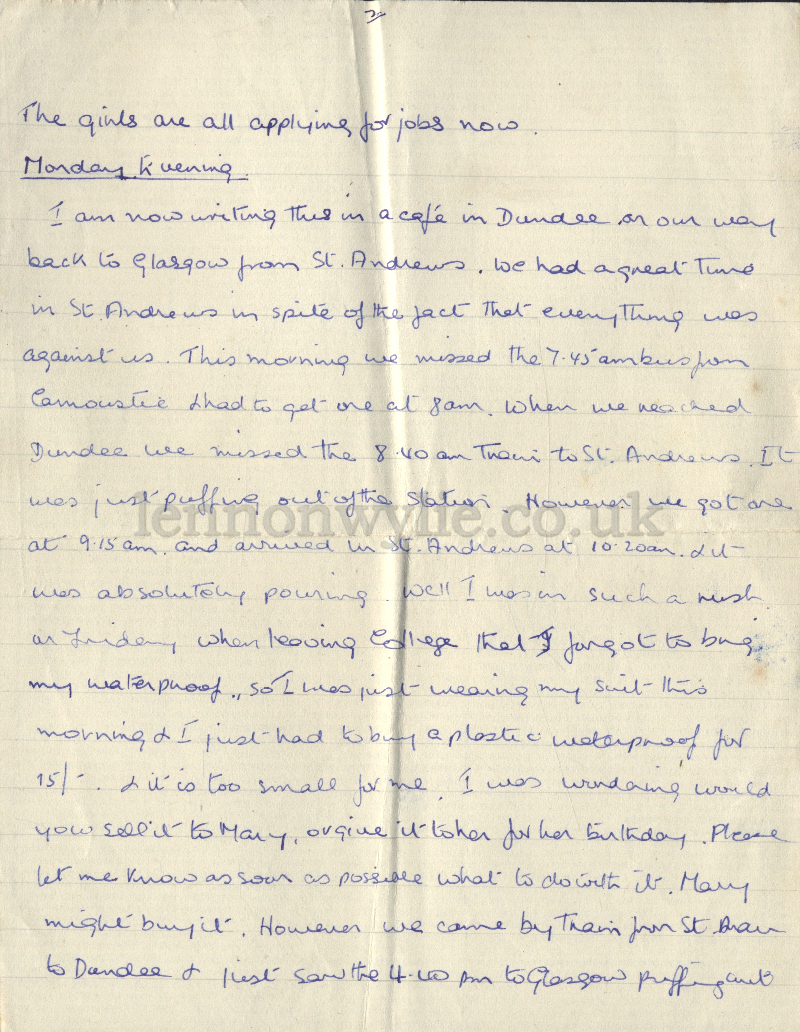 2
The girls are all applying for jobs now.
Monday Evening.
I am now writing this in a café in Dundee on our way
back to Glasgow from St. Andrews. We had a great time
in St. Andrews in spite of the fact that everything was
against us. This morning we missed the 7.45am bus from
Carnoustie & had to get one at 8am. When we reached
Dundee we missed the 8.40am Train to St. Andrews. It
was just puffing out of the Station. However we got one
lennonwylie.co.uk
at 9.15am. and arrived in St. Andrews at 10.20am. & it
was absolutely pouring. Well I was in such a rush
on Friday when leaving College that I forgot to bring
my waterproof., so I was just wearing my suit this
morning & I just had to buy a plastic waterproof for
15/-. & it is too small for me. I was wondering would
you sell it to Mary, or give it to her for her birthday. Please
let me know as soon as possible what to do with it. Mary
might buy it. However we came by Train from St. Andrews
to Dundee & just saw the 4.40 pm to Glasgow puffing out